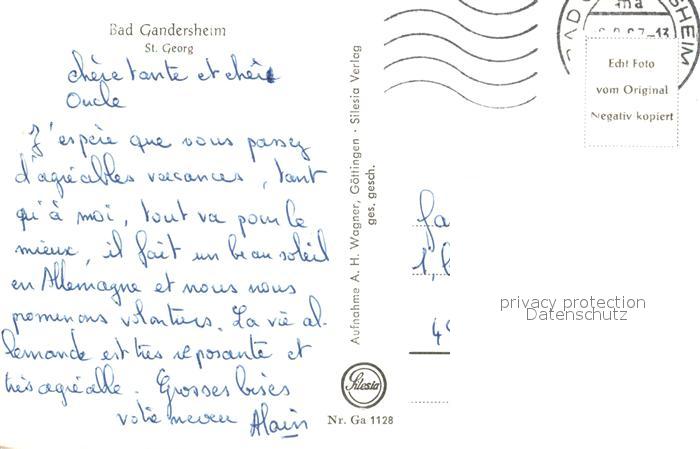 Bad Gandersheim
St. Georg
chère tante et chère
Oncle
J'espère que vous passez
d'agréables vacances, tant
qu'à moi, tout va pour le
mieux, il fait un beau soleil
en Allemagne et nous nous
promenons volontiers. La vie al-
lemande est très reposante et
très agréable. Grosses bises
votre neveu Alain
Aufnahme A. H. Wagner, Göttingen · Silesia Verlag
ges. gesch.
Silesia
Nr. Ga 1128
BAD
SHEIM
-13
Echt Foto
vom Original
Negativ kopiert
fa
1,
privacy protection
Datenschutz